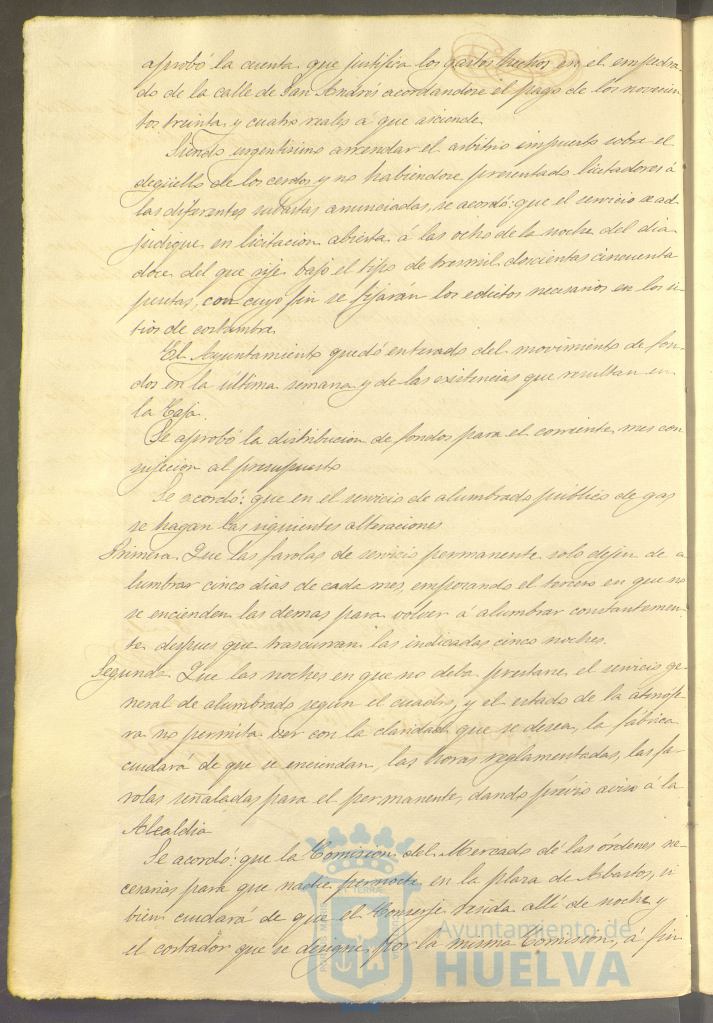 aprobó la cuenta que justifica los gastos hechos en el empedra-
do de la calle de San Andrés acordandose el pago de los novecien-
tos treinta y cuatro reales á que asciende.
Siendo urgentísimo arrendar el arbitrio impuesto sobre el
degüello de los cerdos y no habiendose presentado licitadores á
las diferentes subastas anunciadas, se acordó: que el servicio se ad-
judique en licitacion abierta á las ocho de la noche del dia
doce del que rije bajo el tipo de tresmil doscientas cincuenta
pesetas, con cuyo fin se fijarán los edictos necesarios en los si-
tios de costumbre.
El Ayuntamiento quedó enterado del movimiento de fon-
dos en la última semana y de las existencias que resultan en
la Caja.
Se aprobó la distribucion de fondos para el corriente mes con
sujecion al presupuesto
Se acordó: que en el servicio de alumbrado público de gas
se hagan las siguientes alteraciones
Primera. Que las farolas de servicio permanente solo dejen de a
lumbrar cinco dias de cada mes, empezando el tercero en que no
se encienden las demas para volver á alumbrar constantemen-
te despues que trascurran las indicadas cinco noches.
Segunda. Que las noches en que no deba prestarse el servicio ge-
neral de alumbrado segun el cuadro, y el estado de la atmosfe-
ra no permita ver con la claridad que se desea, la fábrica
cuidará de que se enciendan, las horas reglamentadas, las fa-
rolas señaladas para el permanente, dando prévio aviso á la
Alcaldia
Se acordó: que la Comision del Mercado dé las órdenes ne-
cesarias para que nadie pernocte en la plaza de Abastos, si
bien cuidará de que el Conserje resida allí de noche y
el cortador que se designe por la misma Comision, á fin
Ayuntamiento de
HUELVA